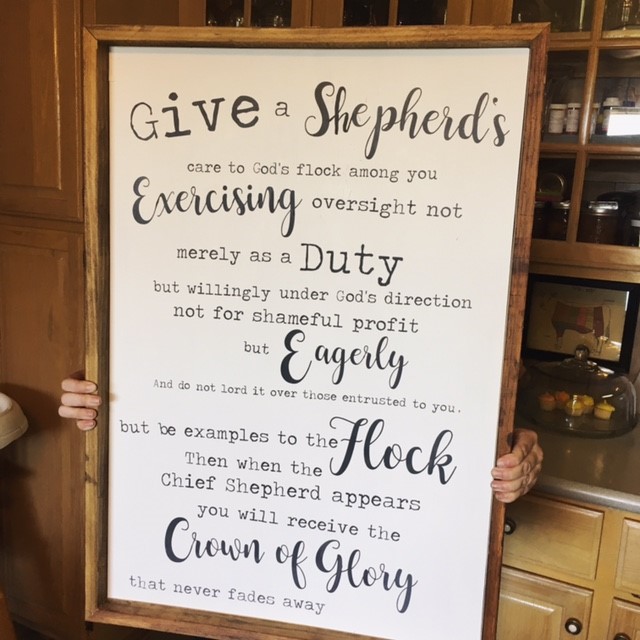 Give a Shepherd's
care to God's flock among you
Exercising oversight not
merely as a Duty
but willingly under God's direction
not for shameful profit
but Eagerly
And do not lord it over those entrusted to you.
but be examples to the Flock
Then when the
Chief Shepherd appears
you will receive the
Crown of Glory
that never fades away